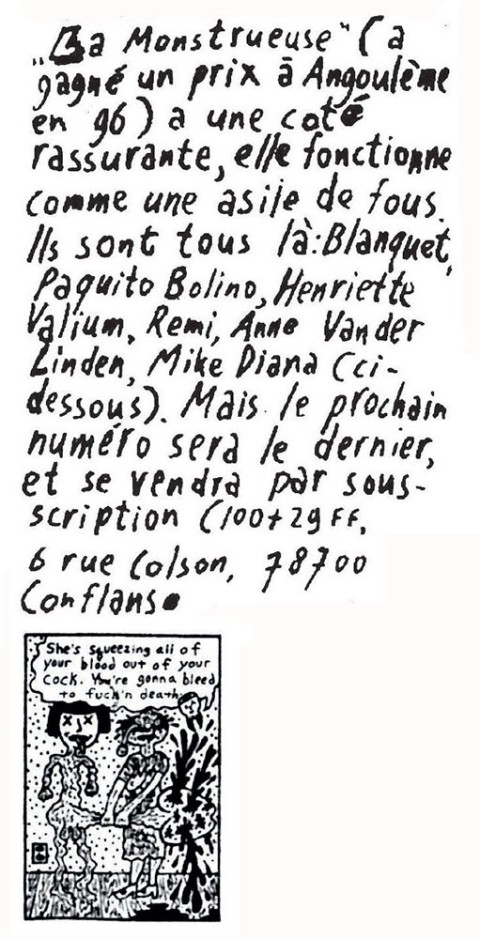 „La Monstrueuse" (a
gagné un prix à Angoulème
en 96) a une coté
rassurante, elle fonctionne
comme une asile de fous.
Ils sont tous là: Blanquet,
Paquito Bolino, Henriette
Valium, Remi, Anne Van der
Linden, Mike Diana (ci-
dessous). Mais le prochain
numéro sera le dernier,
et se vendra par sous-
scription (100+29 FF,
6 rue Colson, 78700
Conflans.
She's squeezing all of
your blood out of your
cock. You're gonna bleed
to fuck'n death